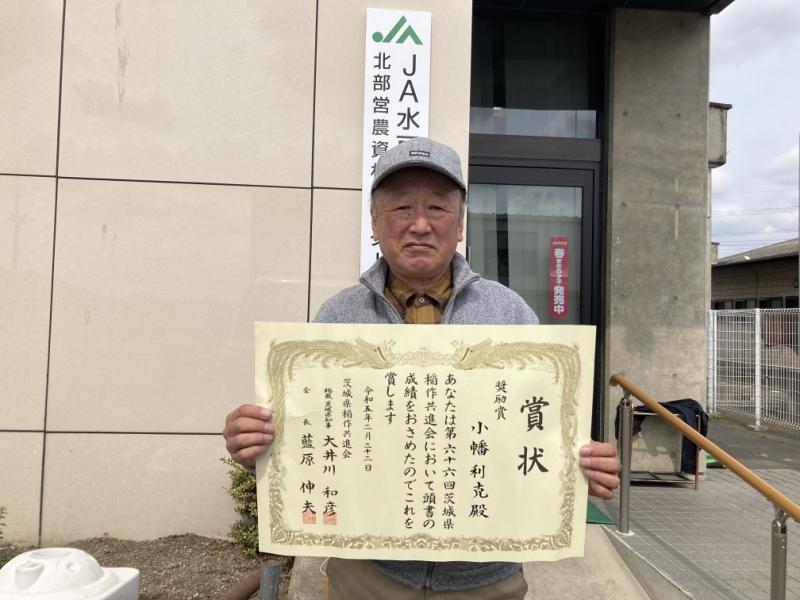 JA水
北部営農資
春
発売中
賞状
奨励賞
小幡利克殿
あなたは第六十六回茨城県
稲作共進会において頭書の
成績をおさめたのでこれを
賞します
令和五年二月二十二日
茨城県稲作共進会
総裁 茨城県知事 大井川和彦
会長 藍原伸夫